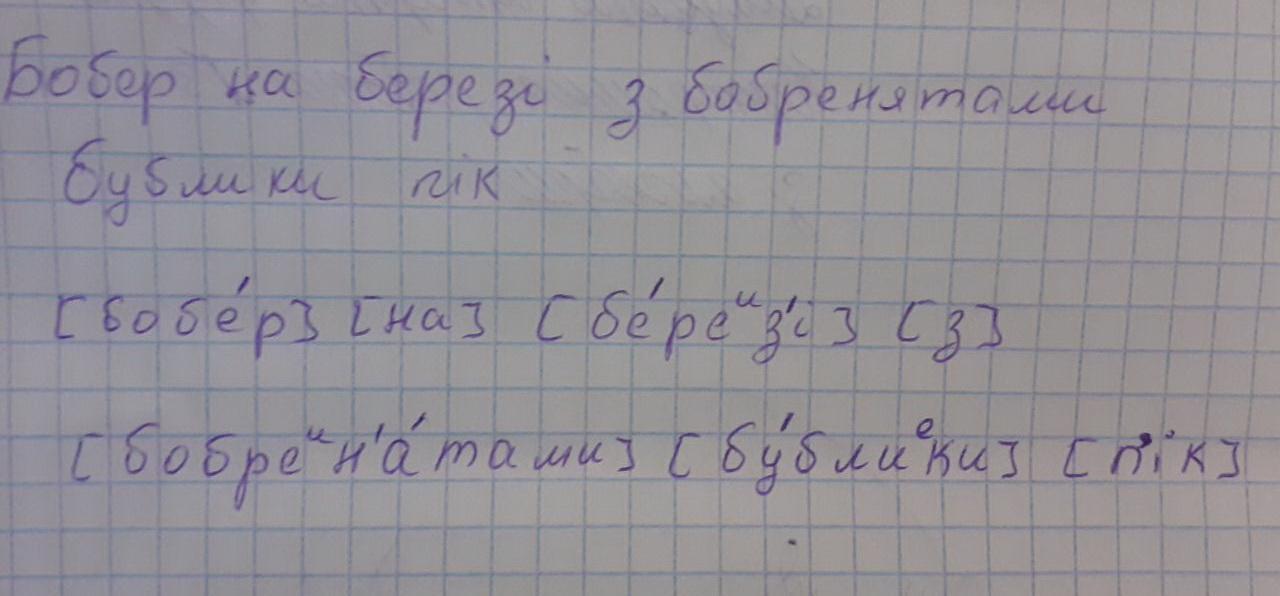 Бобер на березі з бобренятами
бублики пік
[бобе́р] [на] [бе́реᶦᶦз'і] [з]
[бобреᶦᶦн'а́тами] [бу́блиᵉки] [п'ік]